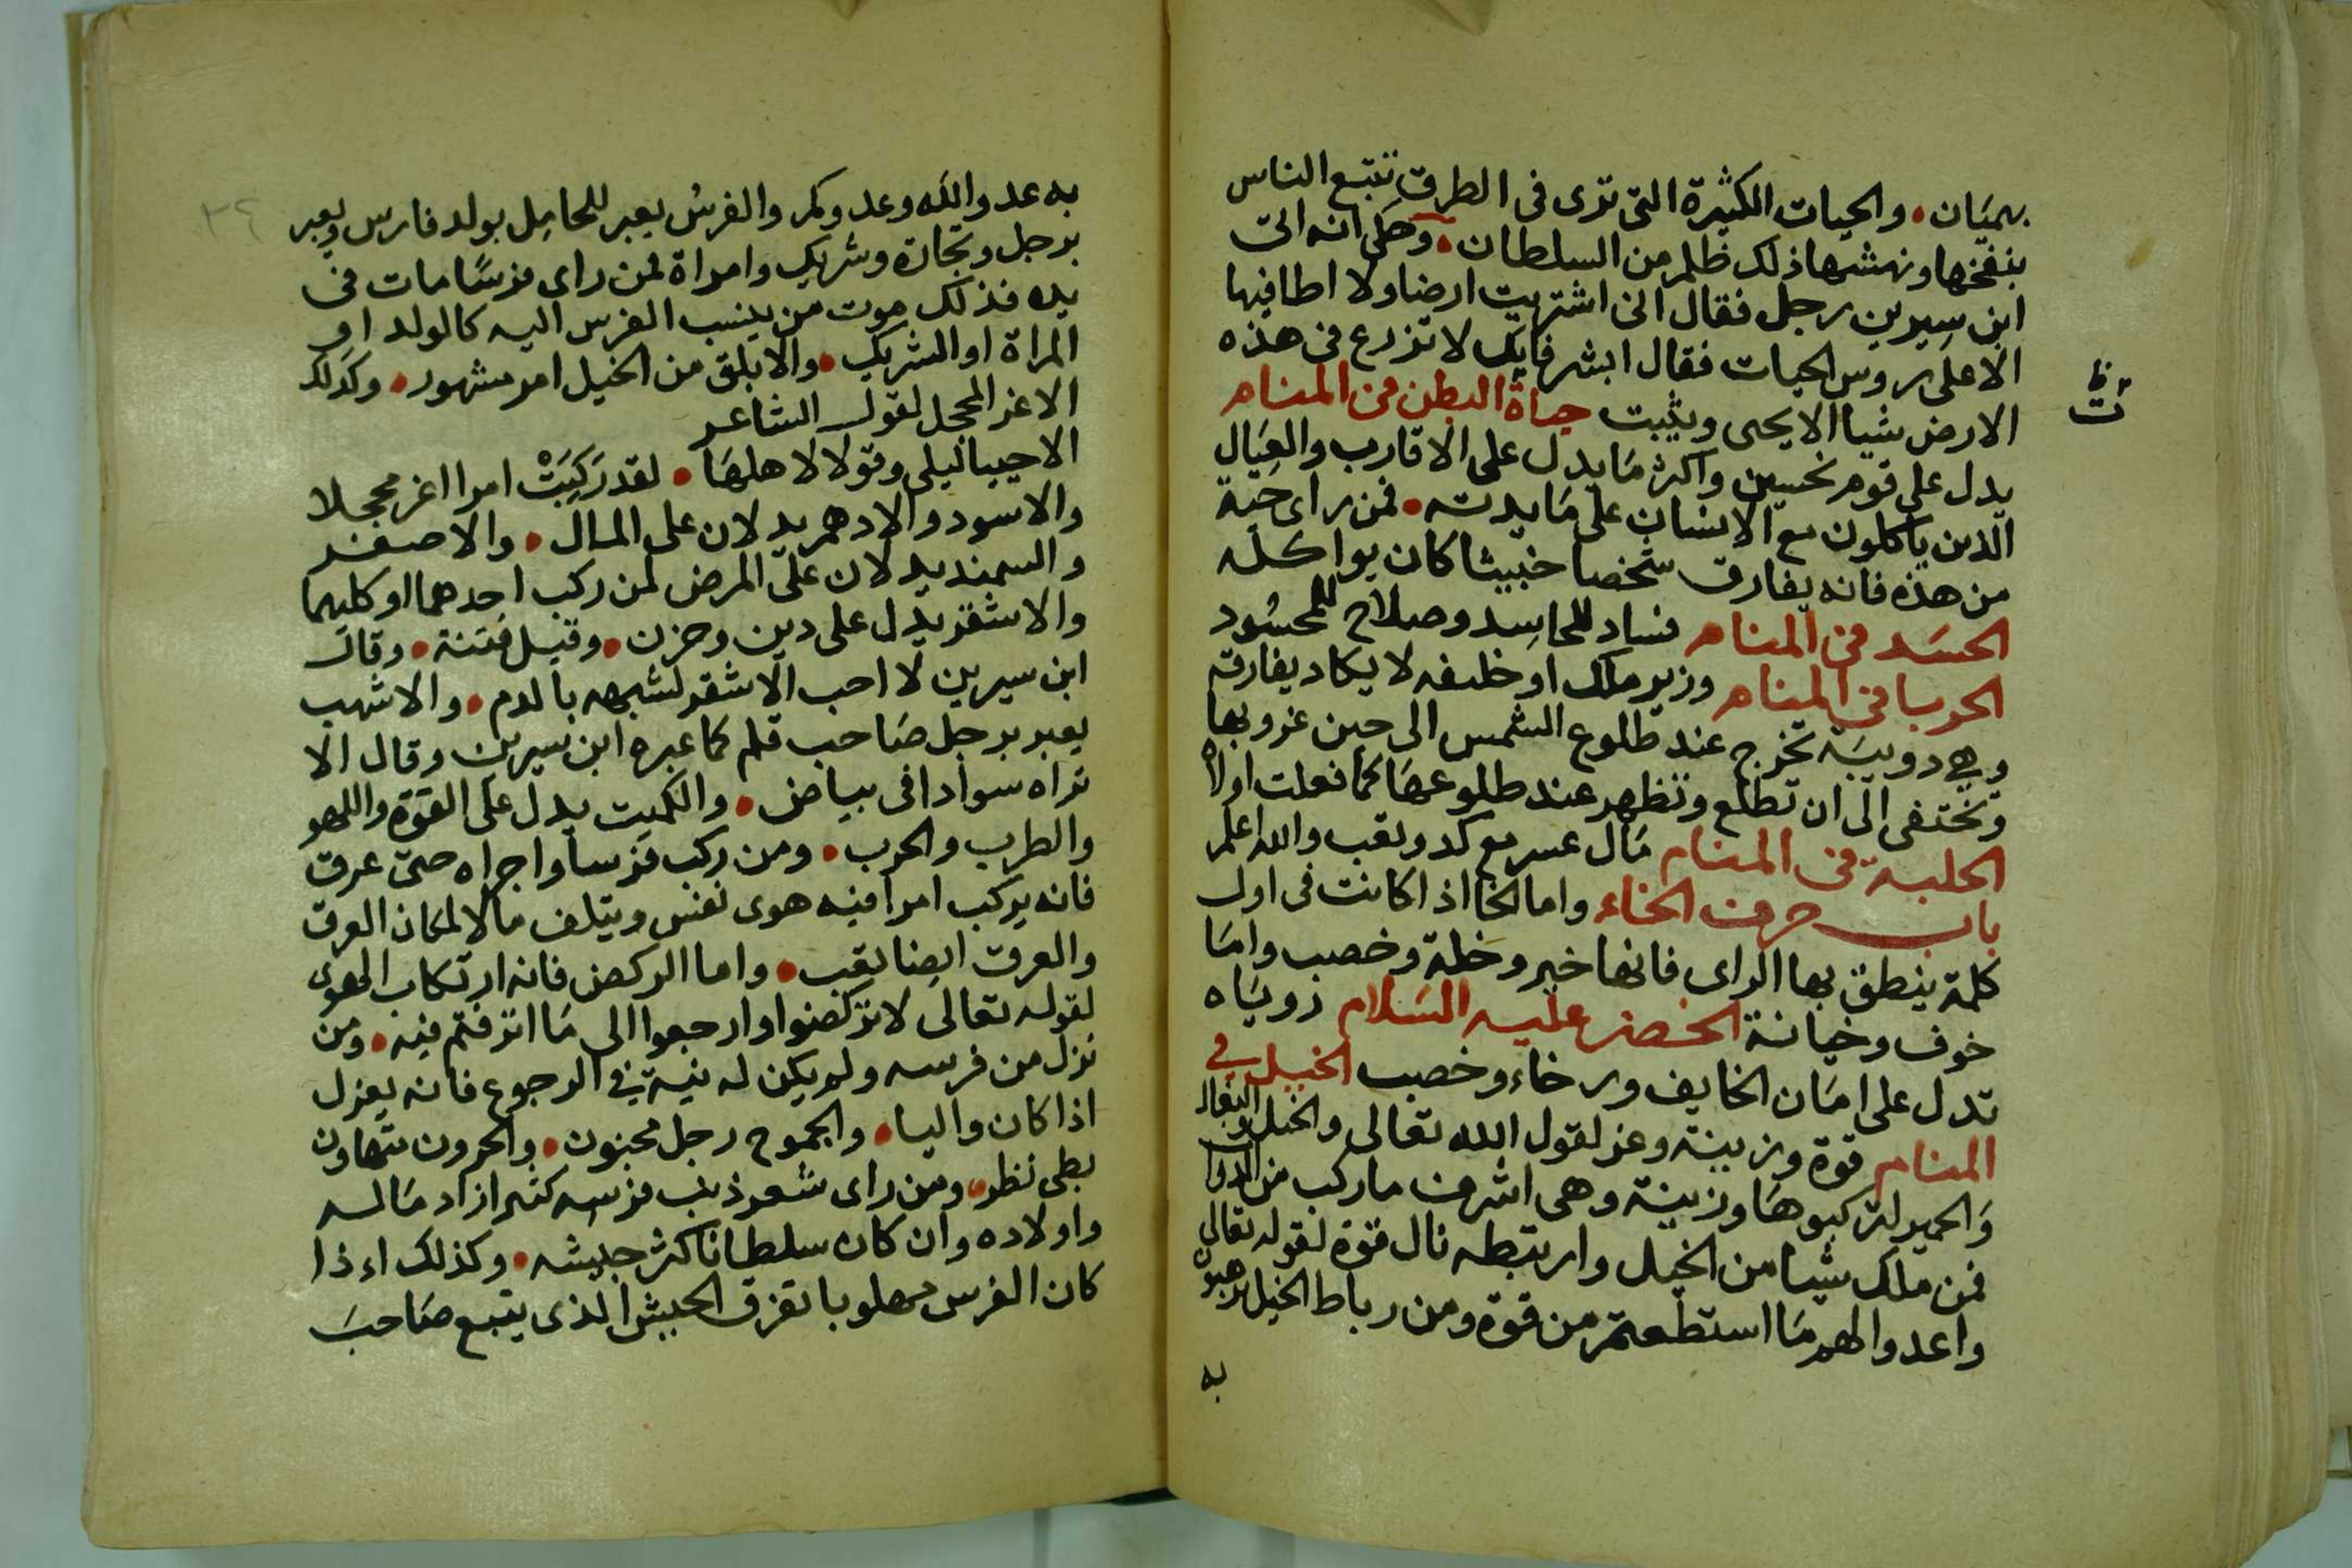 بهميان والحيات الكثيرة التى ترى فى الطرق تتبع الناس
بنفخها ونهشها ذلك ظلم من السلطان وحكى انه اتى
ابن سيرين رجل فقال انى اشتريت ارضا ولا اطا فيها
الا على روس الحيات فقال ابشر فانك لا تزرع فى هذه
الارض شيا الا يحى ويثبت حياة البطن فى المنام
يدل على قوم نحسين واكثر ما يدل على الاقارب والعيال
الذين ياكلون مع الانسان على مايدته فمن راى حية
من هذه فانه يفارق شخصا خبيثا كان يواكله
الحسد فى المنام فساد للحاسد وصلاح للمحسود
الحربا فى المنام وزير ملك او خليفه لا يكاد يفارقه
وهي دويبة تخرج عند طلوع الشمس الى حين غروبها
وتختفى الى ان تطلع وتظهر عند طلوعها كما فعلت اولا
الحلبة فى المنام مال عسر مع كد وتعب والله اعلم
باب حرف الخاء واما الخا اذا كانت فى اول
كلمة ينطق بها الراى فانها خير وخلة وخصب واما
خوف وخيانة الخضر عليه السلام روياه
تدل على امان الخايف ورخاء وخصب الخيل في
المنام قوة وزينة وعز لقول الله تعالى والخيل والبغال
والحمير لتركبوها وزينة وهى اشرف ما ركب من الدواب
فمن ملك شيا من الخيل وارتبطه نال قوة لقوله تعالى
واعدوا لهم ما استطعتم من قوة ومن رباط الخيل ترهبون
به
به عدو الله وعدوكم والفرس يعبر للحامل بولد فارس ويعبر
برجل وتجارة وشريك وامراة لمن راى فرسا مات فى
يده فذلك موت من ينسب الفرس اليه كالولد او
المراة او الشريك والابلق من الخيل امر مشهور وكذلك
الاغر المحجل لقول الشاعر
الا حييا ليلى وقولا لاهلها لقد ركبت امرا اغر محجلا
والاسود والادهم يدلان على المال والاصفر
والسمند يدلان على المرض لمن ركب احدهما او كليهما
والاشقر يدل على دين وحزن وقيل فتنة وقال
ابن سيرين لا احب الاشقر لشبهه بالدم والاشهب
يعبر برجل صاحب قلم كما عبره ابن سيرين وقال الا
تراه سوادا فى بياض والكميت يدل على القوة واللهو
والطرب والحرب ومن ركب فرسا واجراه حتى عرق
فانه يركب امرا فيه هوى نفس ويتلف مالا لمكان العرق
والعرق ايضا تعب واما الركض فانه ارتكاب الهوى
لقوله تعالى لا تركضوا وارجعوا الى ما اترفتم فيه ومن
نزل من فرسه ولم يكن له نية في الرجوع فانه يعزل
اذا كان واليا والجموح رجل مجنون والحرون متهاون
بطى نظر ومن راى شعر ذنب فرسه كثر ازاد ماله
واولاده وان كان سلطانا كثر جيشه وكذلك اءذا
كان الفرس مهلوبا تفرق الجيش الذى يتبع صاحب